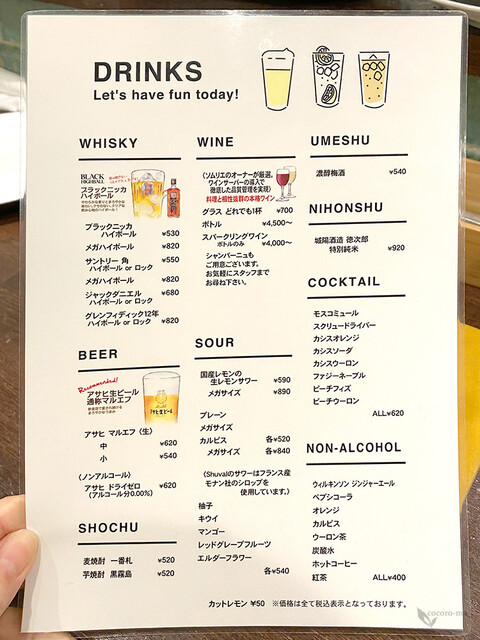 DRINKS
Let's have fun today!
WHISKY
BLACK
HIGHBALL
ブラックニッカ
ハイボール
ブラックニッカ
ハイボール ¥530
メガハイボール ¥820
サントリー 角 ¥550
ハイボール or ロック
メガハイボール ¥820
ジャックダニエル ¥680
ハイボール or ロック
グレンフィディック12年
ハイボール or ロック ¥820
BEER
Recommended!
アサヒ生ビール
通称マルエフ
アサヒ マルエフ (生)
中 ¥620
小 ¥540
(ノンアルコール)
アサヒ ドライゼロ ¥620
(アルコール分0.00%)
SHOCHU
麦焼酎 一番札 ¥520
芋焼酎 黒霧島 ¥520
WINE
(ソムリエのオーナーが厳選。
ワインサーバーの導入で
徹底した品質管理を実現)
料理と相性抜群の本格ワイン
グラス どれでも1杯 ¥700
ボトル ¥4,500〜
スパークリングワイン
ボトルのみ ¥4,000〜
シャンパーニュも
ご用意ございます。
お気軽にスタッフまで
お尋ね下さい。
SOUR
国産レモンの
生レモンサワー ¥590
メガサイズ ¥890
プレーン
メガサイズ
カルピス 各¥520
メガサイズ 各¥840
(Shuvalのサワーはフランス産
モナン社のシロップを
使用しています。)
柚子
キウイ
マンゴー
レッドグレープフルーツ
エルダーフラワー
各¥540
UMESHU
濃醇梅酒 ¥540
NIHONSHU
城陽酒造 徳次郎
特別純米 ¥920
COCKTAIL
モスコミュール
スクリュードライバー
カシスオレンジ
カシスソーダ
カシスウーロン
ファジーネーブル
ピーチフィズ
ピーチウーロン
ALL¥620
NON-ALCOHOL
ウィルキンソン ジンジャーエール
ペプシコーラ
オレンジ
カルピス
ウーロン茶
炭酸水
ホットコーヒー
紅茶 ALL¥400
カットレモン ¥50 ※価格は全て税込表示となっております。